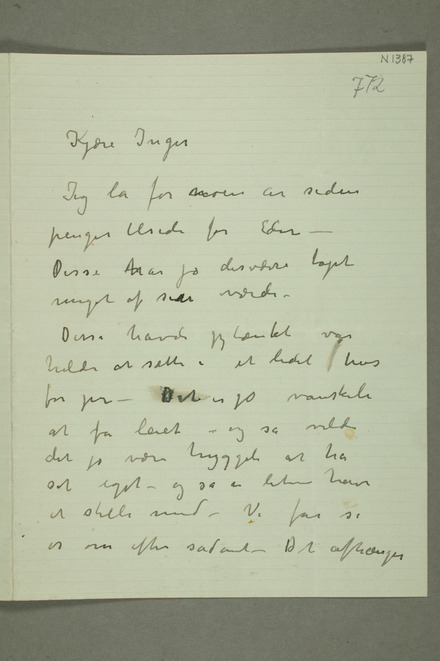 N1387
772
Kjære Inger
Jeg la for noen år siden
penger tilside for Eder —
Disse har jo desværre tapt
meget af sin værdi –
Disse havde jeg tænkt var
bedst at sætte i et lidet hus
for jer — Det er jo vanskeli
at få leiet – og så vilde
det jo være hyggeli at ha
set eget – og så en liten have
at stelle med – Vi får se
os om efter sådant – Det afhænger